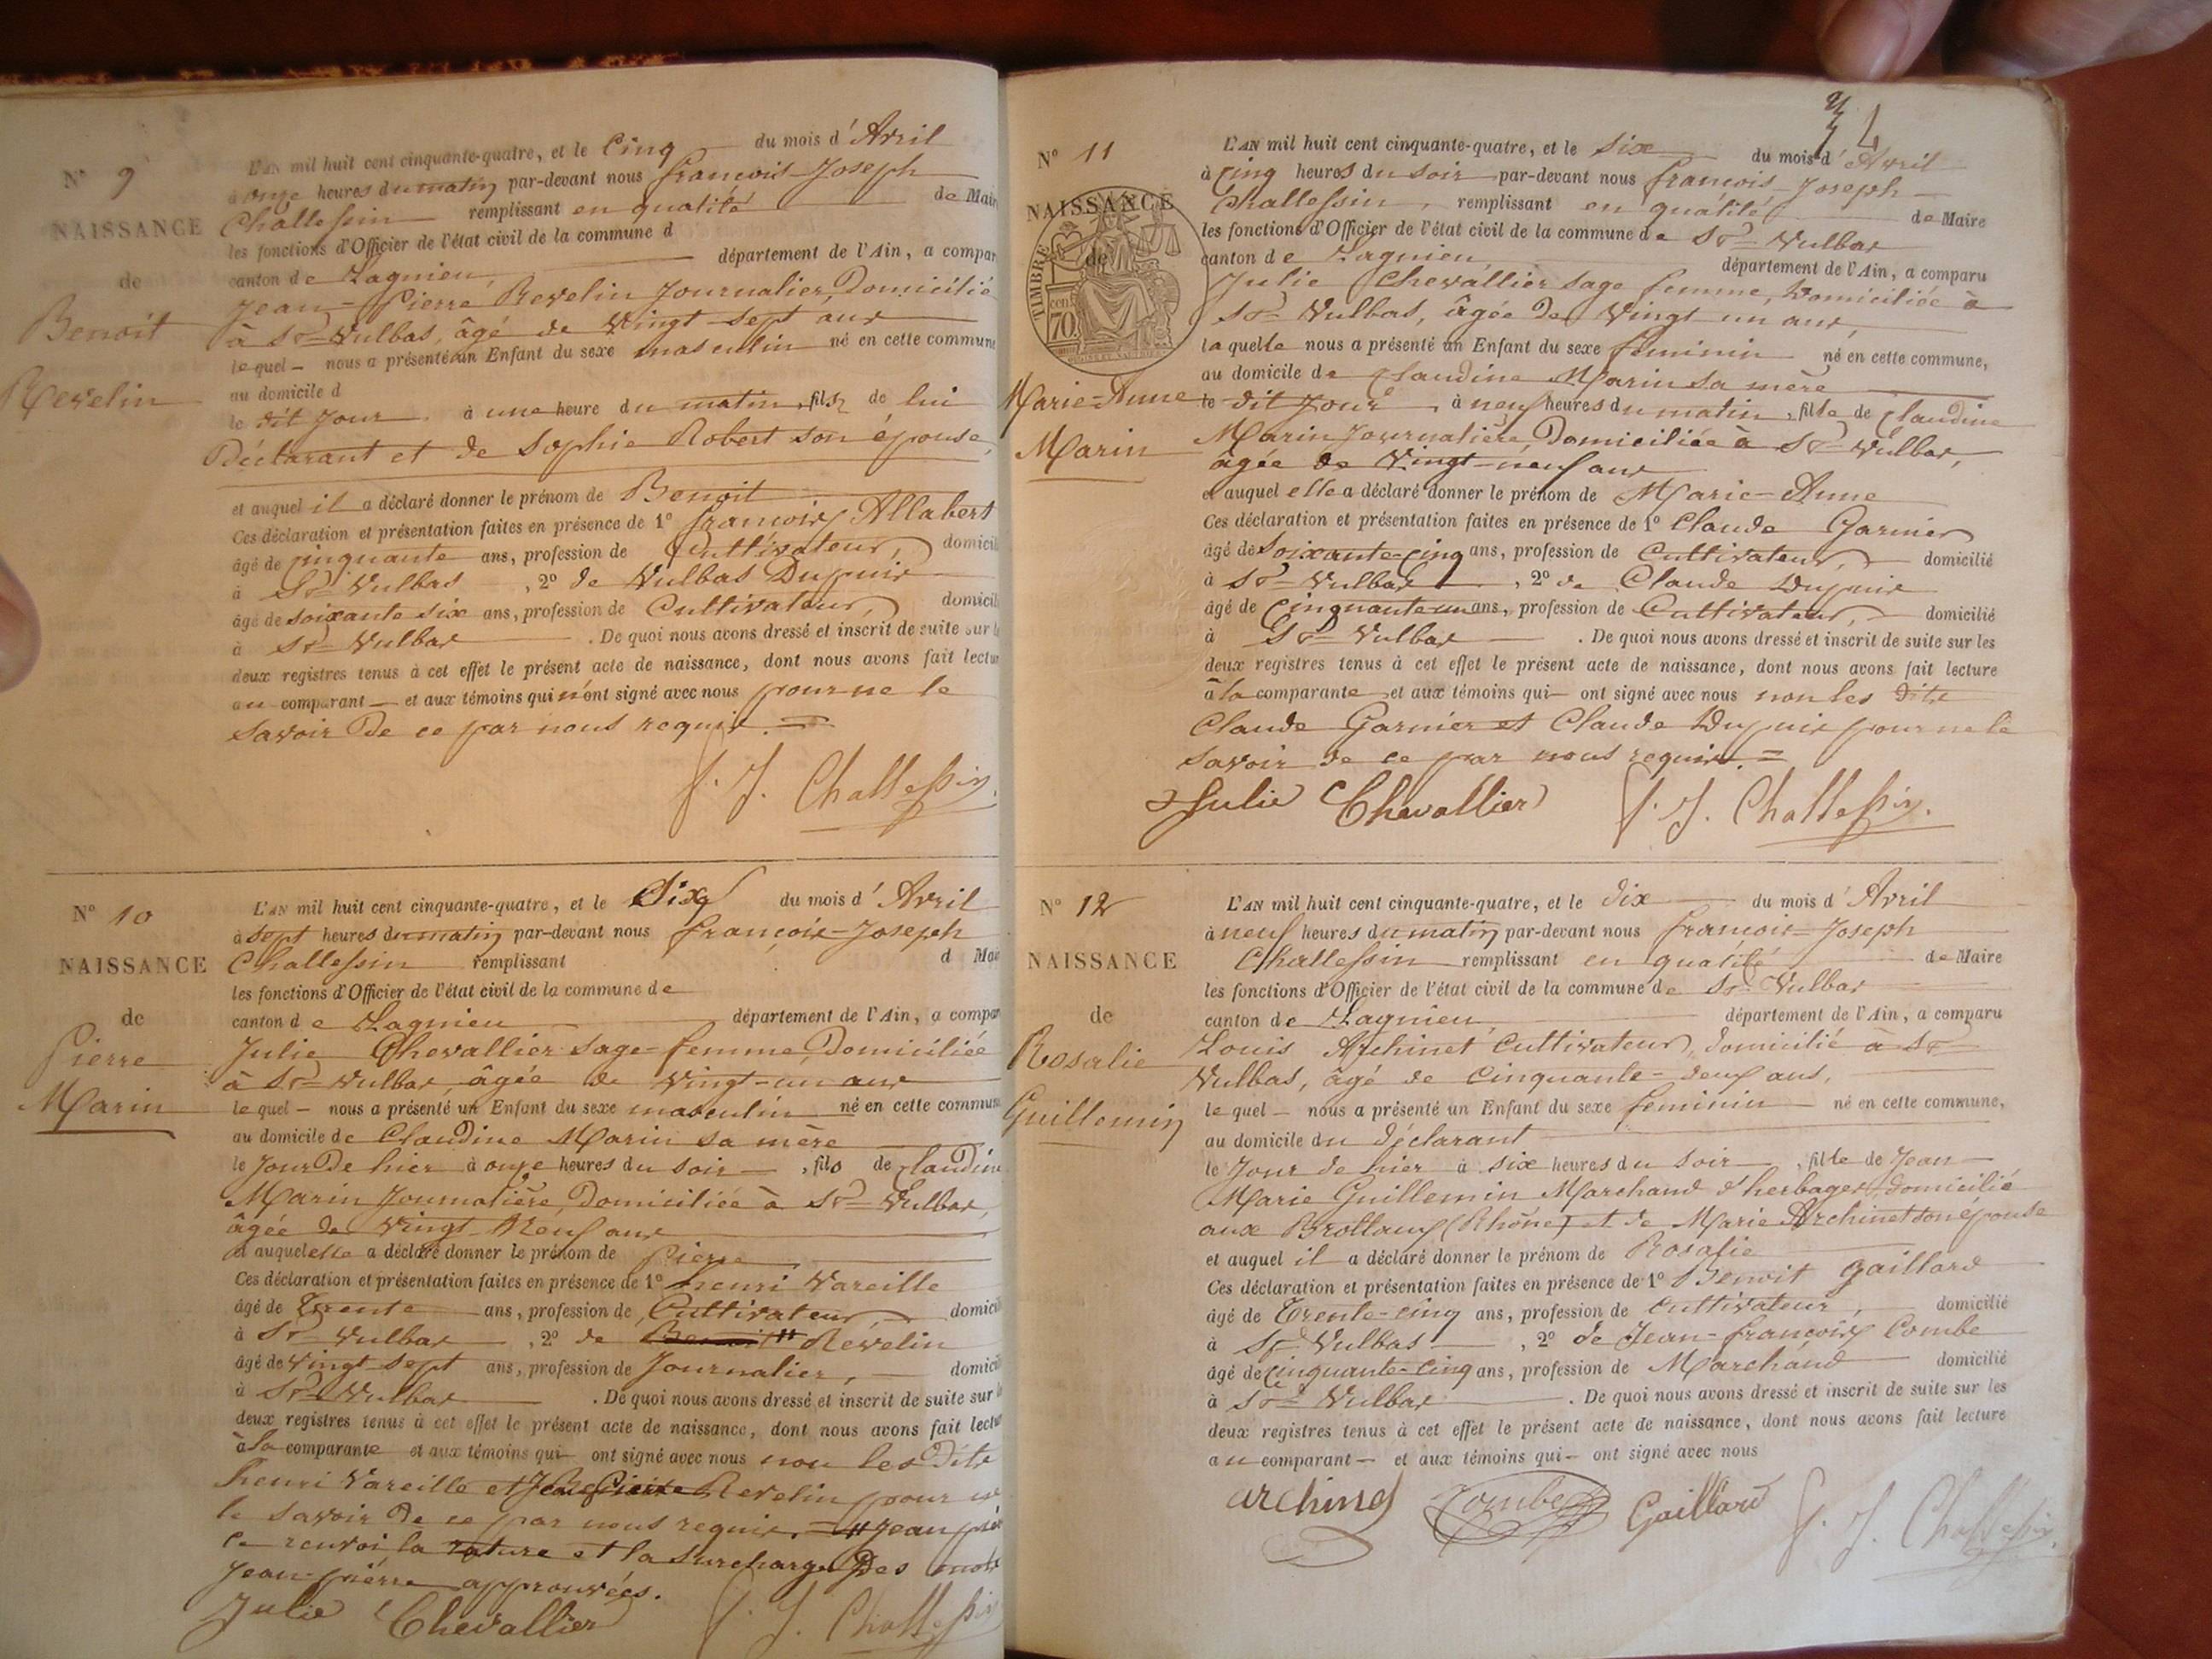 N° 9
NAISSANCE
de
Benoit
Revelin
L'AN mil huit cent cinquante-quatre, et le Cinq du mois d'Avril
à onze heures du matin par-devant nous françois-Joseph
Challessin remplissant en qualité de Mair
les fonctions d'Officier de l'état civil de la commune d
canton de Lagnieu, département de l'Ain, a compar
Jean-Pierre Revelin Journalier, Domicilié
à St Vulbas, âgé de Vingt-sept ans
lequel nous a présenté un Enfant du sexe masculin né en cette commune
au domicile d
le dit Jour à une heure du matin, fils de lui
Déclarant et de Sophie Robert son épouse,
et auquel il a déclaré donner le prénom de Benoit
Ces déclaration et présentation faites en présence de 1° françois Allabert
âgé de cinquante ans, profession de Cultivateur, domicili
à St Vulbas, 2° de Vulbas Dupuis
âgé de soixante six ans, profession de Cultivateur, domicili
à St Vulbas. De quoi nous avons dressé et inscrit de suite sur le
deux registres tenus à cet effet le présent acte de naissance, dont nous avons fait lectur
au comparant et aux témoins qui n'ont signé avec nous pour ne le
savoir de ce par nous requis. =
f. J. Challessin.
N° 10
NAISSANCE
de
Pierre
Marin
L'AN mil huit cent cinquante-quatre, et le Six du mois d'Avril
à sept heures du matin par-devant nous françois-Joseph
Challessin remplissant d Mai
les fonctions d'Officier de l'état civil de la commune de
canton de Lagnieu département de l'Ain, a compar
Julie Chevallier sage-femme, Domiciliée
à St Vulbas, âgée de vingt-un ans
lequel nous a présenté un Enfant du sexe masculin né en cette commune
au domicile de Claudine Marin sa mère
le Jour de hier à onze heures du soir, fils de Claudine
Marin Journalière, Domiciliée à St Vulbas,
âgée de Vingt-Neuf ans
et auquel elle a déclaré donner le prénom de Pierre
Ces déclaration et présentation faites en présence de 1° henri Vareille
âgé de Trente ans, profession de Cultivateur, domicili
à St Vulbas, 2° de Benoit " Revelin
âgé de vingt-sept ans, profession de Journalier, domicili
à St Vulbas. De quoi nous avons dressé et inscrit de suite sur le
deux registres tenus à cet effet le présent acte de naissance, dont nous avons fait lectur
à la comparante et aux témoins qui ont signé avec nous non les dits
henri Vareille et Jean Pierre Revelin pour ne
le savoir de ce par nous requis. = " Jean pier
ce renvoi la rature et la surcharge Des mots
Jean-pierre approuvées.
Julie Chevallier f. J. Challessin
N° 11
NAISSANCE
de
TIMBRE
70 cen
Marie-Anne
Marin
L'AN mil huit cent cinquante-quatre, et le six du mois d'Avril
à cinq heures du soir par-devant nous françois-Joseph
Challessin, remplissant en qualité de Maire
les fonctions d'Officier de l'état civil de la commune de St Vulbas
canton de Lagnieu département de l'Ain, a comparu
Julie Chevallier sage femme, Domiciliée à
St Vulbas, âgée de Vingt un ans,
laquelle nous a présenté un Enfant du sexe feminin né en cette commune,
au domicile de Claudine Marin sa mère
le dit Jour, à neuf heures du matin, fille de Claudine
Marin Journalière, Domiciliée à St Vulbas,
âgée de Vingt-neuf ans
et auquel elle a déclaré donner le prénom de Marie-Anne
Ces déclaration et présentation faites en présence de 1° Claude Garnier
âgé de Soixante-cinq ans, profession de Cultivateur, domicilié
à St Vulbas, 2° de Claude Dupuis
âgé de Cinquante un ans, profession de Cultivateur, domicilié
à St Vulbas. De quoi nous avons dressé et inscrit de suite sur les
deux registres tenus à cet effet le présent acte de naissance, dont nous avons fait lecture
à la comparante et aux témoins qui ont signé avec nous non les dits
Claude Garnier et Claude Dupuis pour ne le
savoir de ce par nous requis. =
Julie Chevallier f. J. Challessin.
N° 12
NAISSANCE
de
Rosalie
Guillemin
L'AN mil huit cent cinquante-quatre, et le dix du mois d'Avril
à neuf heures du matin par-devant nous françois-Joseph
Challessin remplissant en qualité de Maire
les fonctions d'Officier de l'état civil de la commune de St Vulbas
canton de Lagnieu, département de l'Ain, a comparu
Louis Archinet Cultivateur, domicilié à St
Vulbas, âgé de cinquante-deux ans,
lequel nous a présenté un Enfant du sexe feminin né en cette commune,
au domicile du Déclarant
le Jour de hier à six heures du soir, fille de Jean
Marie Guillemin Marchand d'herbages, domicilié
aux Brottaux (Rhône) et de Marie Archinet son épouse
et auquel il a déclaré donner le prénom de Rosalie
Ces déclaration et présentation faites en présence de 1° Benoit Gaillard
âgé de Trente-cinq ans, profession de Cultivateur, domicilié
à St Vulbas, 2° de Jean-françois Combe
âgé de cinquante-cinq ans, profession de Marchand domicilié
à St Vulbas. De quoi nous avons dressé et inscrit de suite sur les
deux registres tenus à cet effet le présent acte de naissance, dont nous avons fait lecture
au comparant et aux témoins qui ont signé avec nous
archinet Combe Gaillard f. J. Challessin